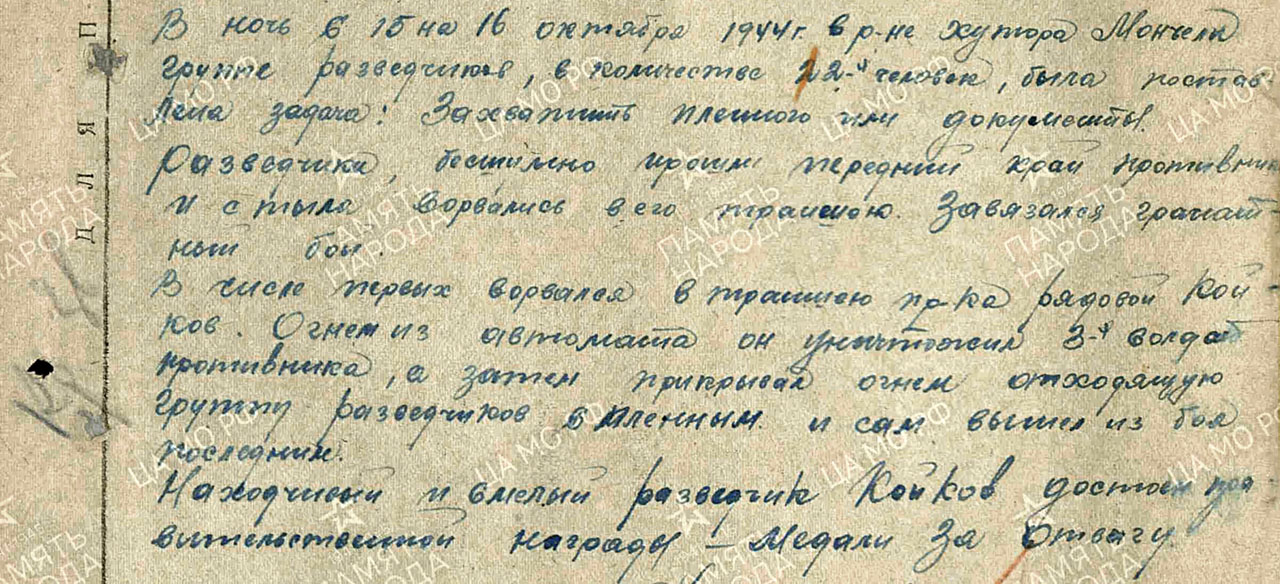 В ночь с 15 на 16 октября 1944 г. в р-не хутора Мончели
группе разведчиков, в количестве 22-х человек, была постав-
лена задача: Захватить пленного или документы.
Разведчики, бесшумно прошли передний край противника
и с тыла ворвались в его траншею. Завязался гранат-
ный бой.
В числе первых ворвался в траншею пр-ка рядовой Кой-
ков. Огнем из автомата он уничтожил 3-х солдат
противника, а затем прикрывал огнем отходящую
группу разведчиков с пленным и сам вышел из боя
последним.
Находчивый и смелый разведчик Койков достоен пра-
вительственной награды – Медали За Отвагу.
ДЛЯ П
ПАМЯТЬ НАРОДА
ЦА МО РФ